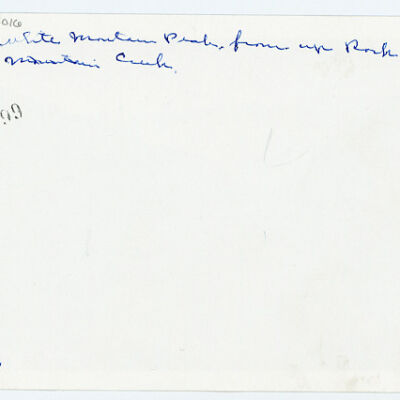 016
White Mountain Peak, from up Rock
Mountain Creek.
99